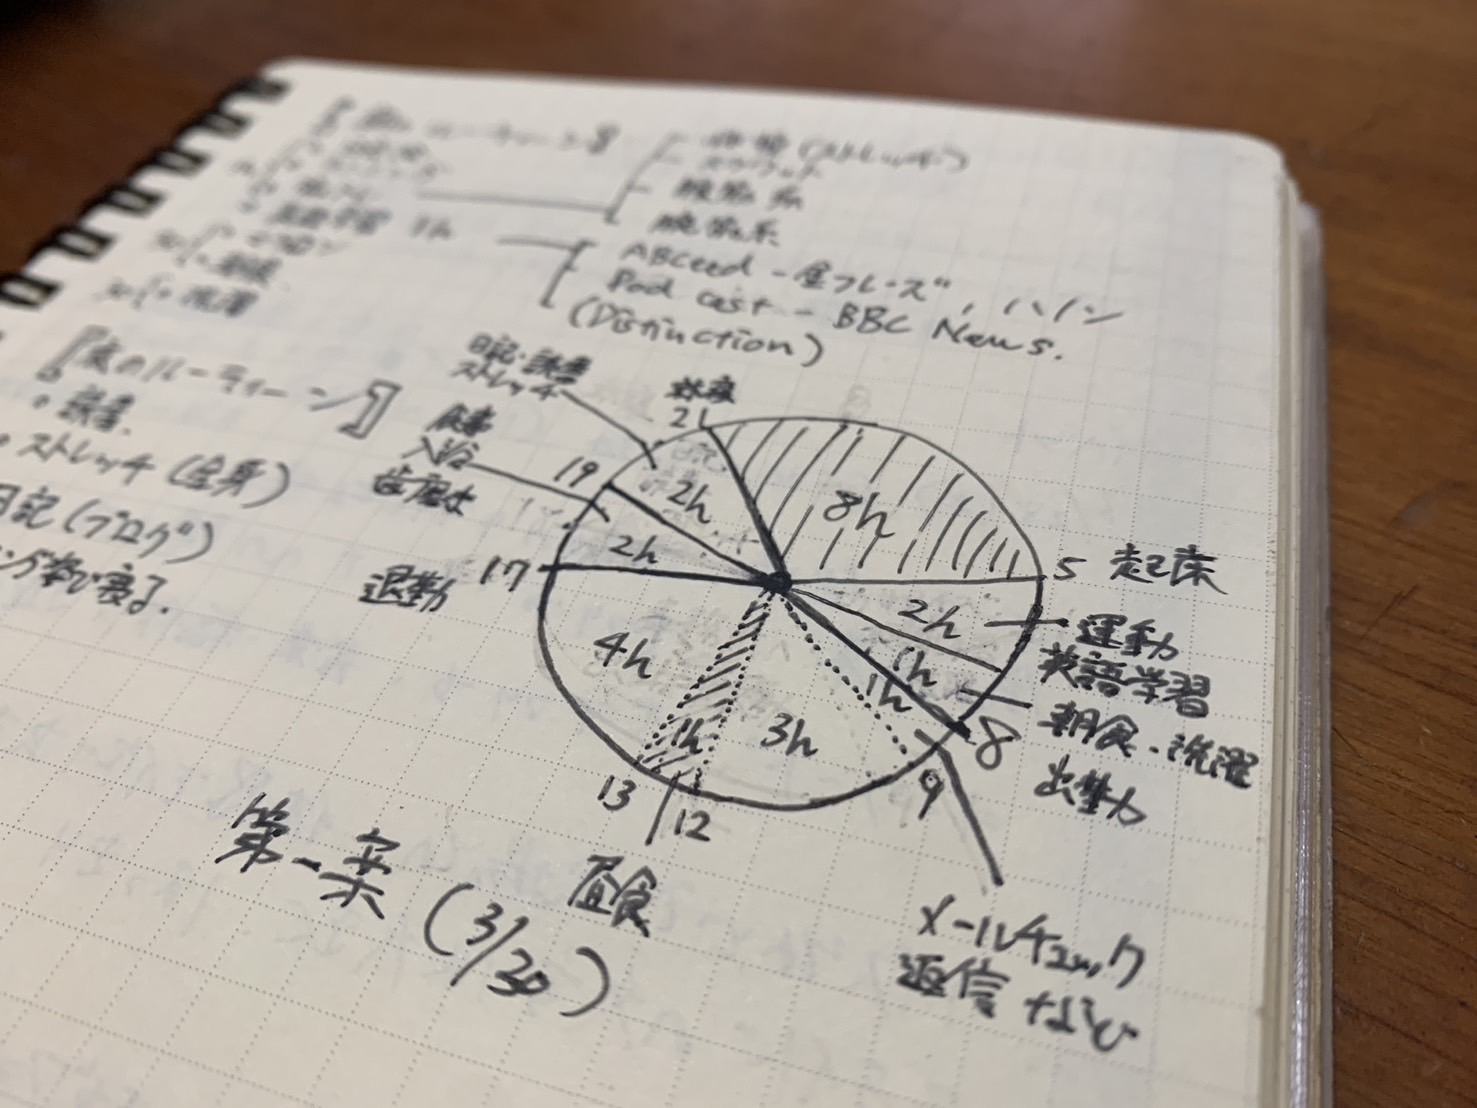 (ストレッチ)
腹筋系
腕筋系
英語学習 1h
ABCeed - 金フレーズ, ハノン
Pod cast - BBC News.
(Distinction)
洗濯
『夜のルーティーン』
・読書.
・ストレッチ(全身)
日記(ブログ)
日記・読書
ストレッチ
食事
入浴
就寝
21
19
17
退勤
2h
2h
8h
5 起床
2h
運動
英語学習
1h
朝食・洗濯
8
出勤
1h
9
メールチェック
返信 など
3h
12
1h
13
昼食
4h
第一案 (3/30)